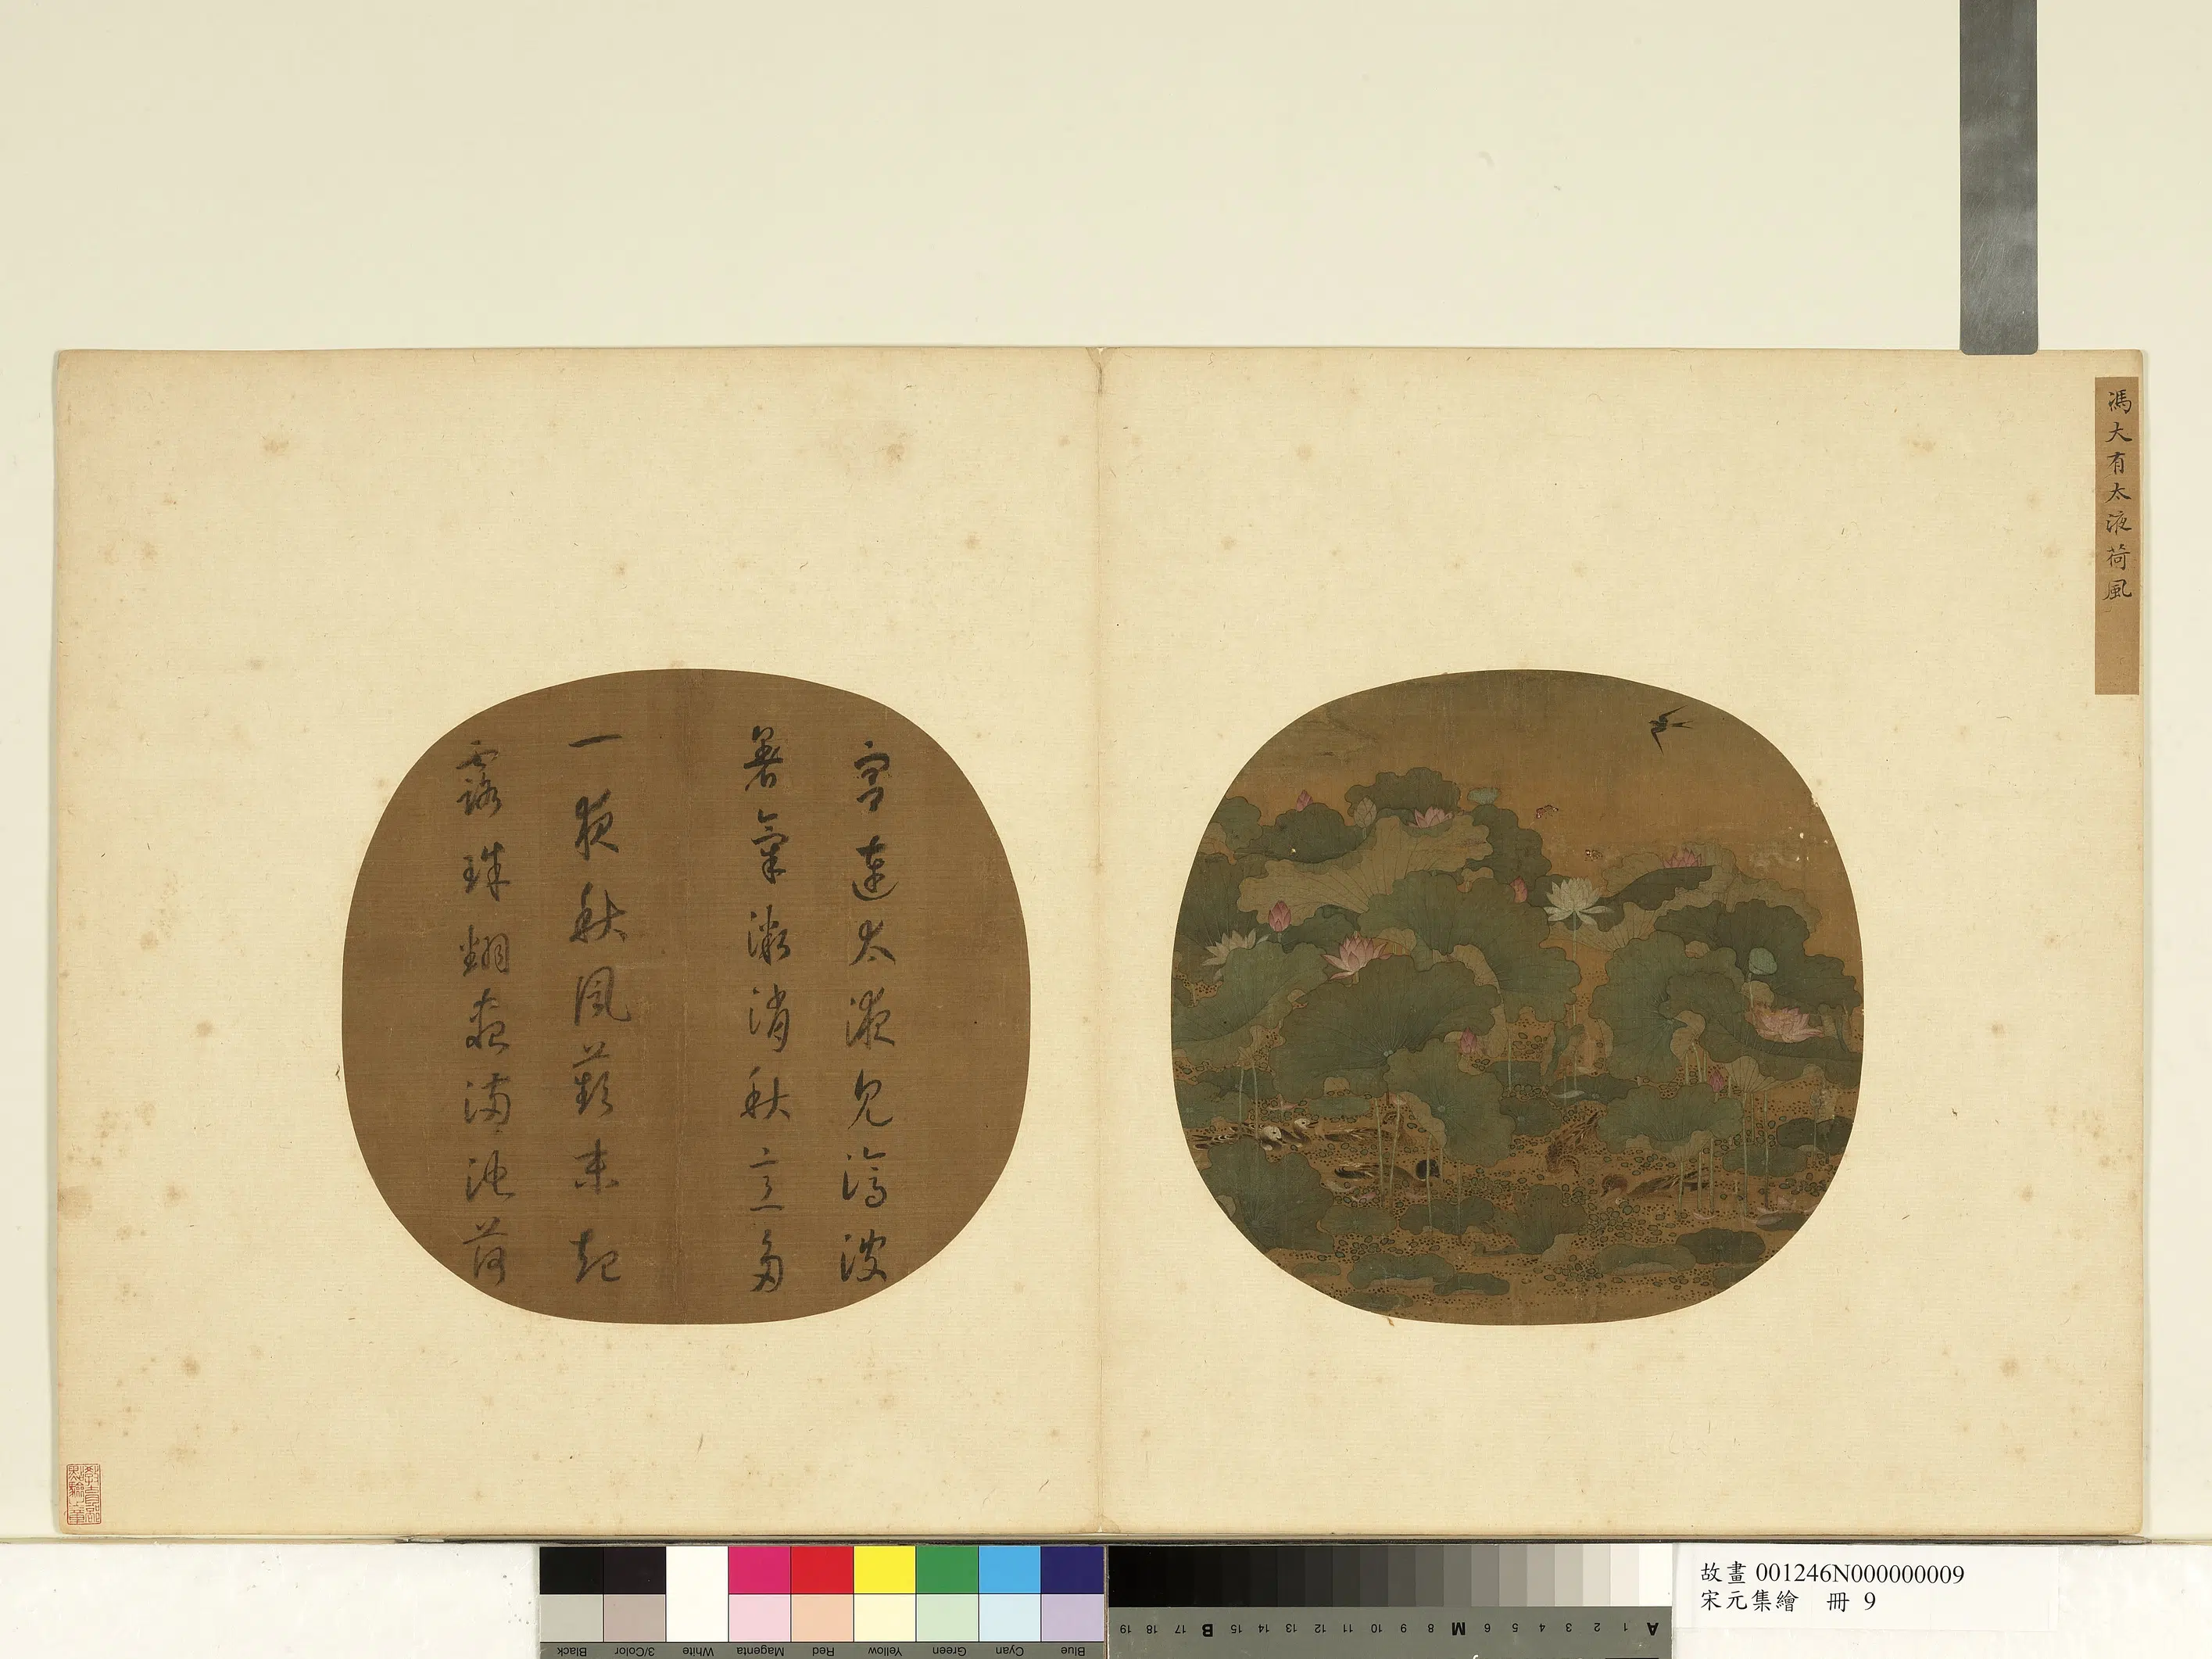 馮大有太液荷風
宮連太液見滄波
暑氣漸消秋意多
一夜秋風蘋末起
露珠翻盡滿池荷
故畫 001246N000000009
宋元集繪 冊 9
Black
3/Color
White
Magenta
Red
Yellow
Green
Cyan
Blue
19 18 17 B 16 15 14 13 12 11 10 9 8 M 7 6 5 4 3 2 1 A